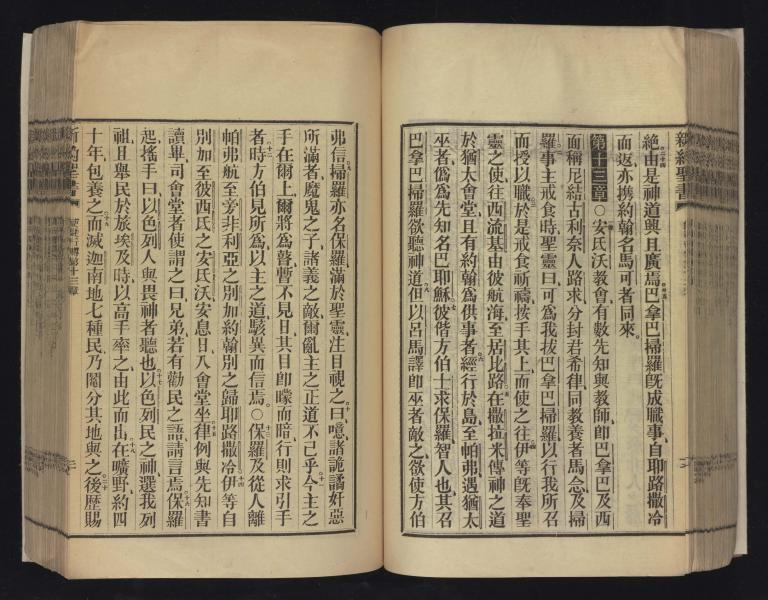 新約聖書
絶由是神道興且廣焉巴拿巴掃羅既成職事自耶路撒冷
而返亦携約翰名馬可者同來。
第十三章○安氏沃教會有數先知與教師即巴拿巴及西
面稱尼結古利奈人路求分封君希律同教養者馬念及掃
羅事主戒食時聖靈曰可為我拔巴拿巴掃羅以行我所召
而授以職於是戒食祈禱按手其上而使之往伊等既奉聖
靈之使往西流基由彼航海至居比路在撒拉米傳神之道
於猶太會堂且有約翰為供事者經行於島至帕弗遇猶太
巫者偽為先知名巴耶穌彼偕方伯士求保羅智人也其召
巴拿巴掃羅欲聽神道但以呂馬譯即巫者敵之欲使方伯
弗信掃羅亦名保羅滿於聖靈注目視之曰噫諸詭譎奸惡
所滿者魔鬼之子諸義之敵爾亂主之正道不已乎今主之
手在爾上爾將為瞽暫不見日其目即矇而暗行則求引手
者時方伯見所為以主之道駭異而信焉。○保羅及從人離
帕弗航至旁非利亞之別加約翰別之歸耶路撒冷伊等自
別加至彼西氏之安氏沃安息日入會堂坐律例與先知書
讀畢司會堂者使謂之曰兄弟若有勸民之語請言焉保羅
起搖手曰以色列人與畏神者聽也以色列民之神選我列
祖且舉民於旅埃及時以高手率之由此而出在曠野約四
十年包養之而滅迦南地七種民乃鬮分其地與之後歷賜
新約聖書